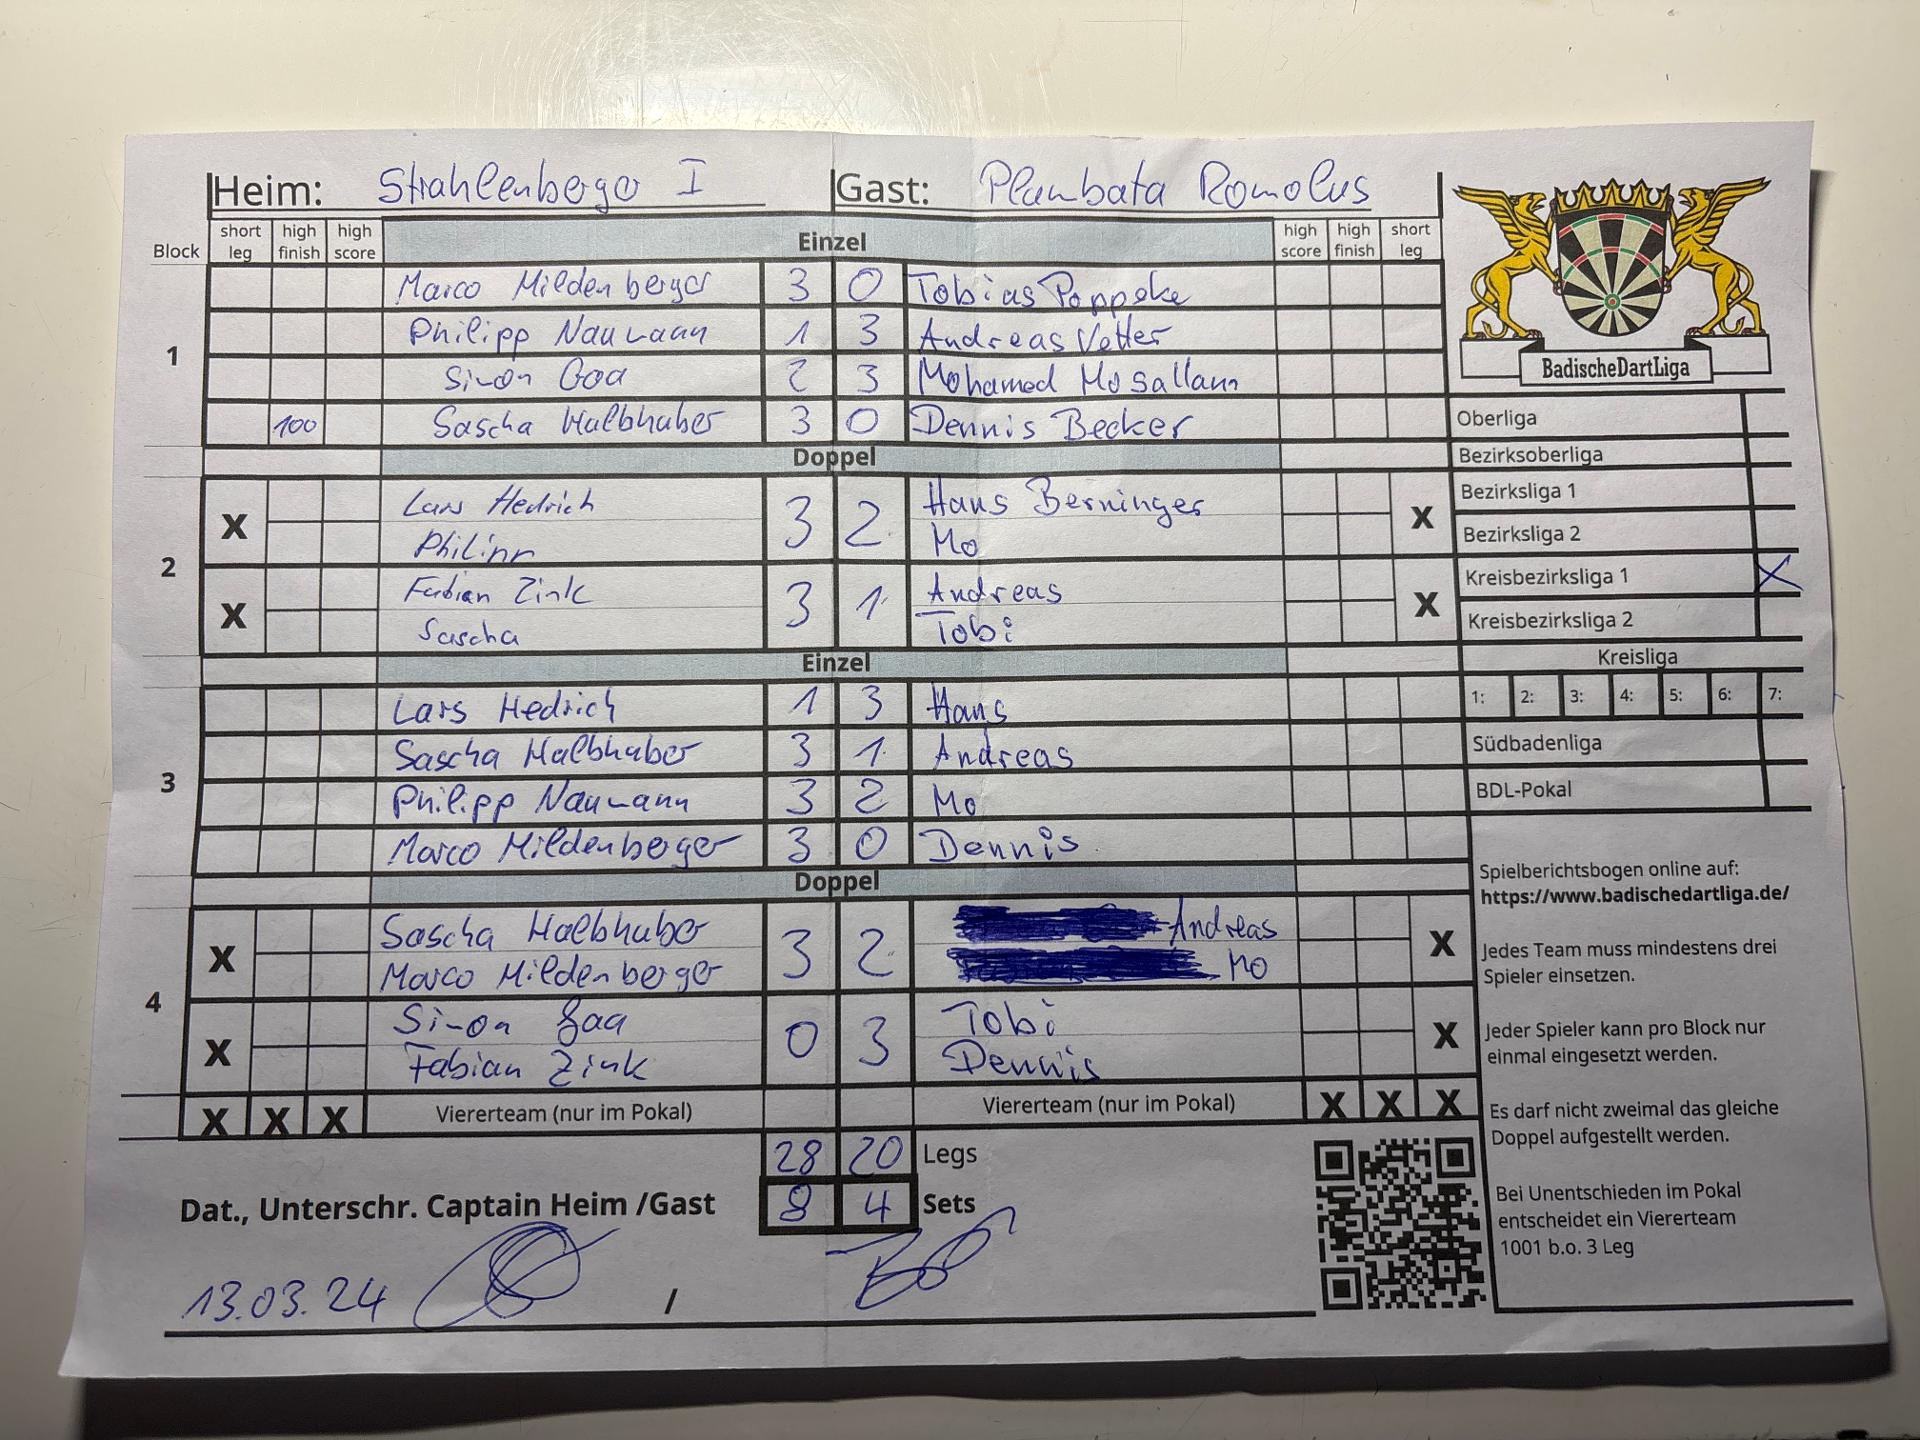 Heim: Strahlenberger I Gast: Plumbata Romolus
Block short leg high finish high score Einzel high score high finish short leg
1
Marco Mildenberger 3 0 Tobias Poppeke
Philipp Naumann 1 3 Andreas Vetter
Simon Gaa 2 3 Mohamed Mosallam
100 Sascha Halbhuber 3 0 Dennis Becker
Doppel
2
X Lars Hedrich 3 2 Hans Berninger X
Philipp Mo
X Fabian Zink 3 1 Andreas X
Sascha Tobi
Einzel
3
Lars Hedrich 1 3 Hans
Sascha Halbhuber 3 1 Andreas
Philipp Naumann 3 2 Mo
Marco Mildenberger 3 0 Dennis
Doppel
4
X Sascha Halbhuber 3 2 Andreas X
Marco Mildenberger Mo
X Simon Gaa 0 3 Tobi X
Fabian Zink Dennis
X X X Viererteam (nur im Pokal) Viererteam (nur im Pokal) X X X
28 20 Legs
Dat., Unterschr. Captain Heim /Gast 8 4 Sets
13.03.24 /
BadischeDartLiga
Oberliga
Bezirksoberliga
Bezirksliga 1
Bezirksliga 2
Kreisbezirksliga 1 X
Kreisbezirksliga 2
Kreisliga
1: 2: 3: 4: 5: 6: 7:
Südbadenliga
BDL-Pokal
Spielberichtsbogen online auf:
https://www.badischedartliga.de/
Jedes Team muss mindestens drei
Spieler einsetzen.
Jeder Spieler kann pro Block nur
einmal eingesetzt werden.
Es darf nicht zweimal das gleiche
Doppel aufgestellt werden.
Bei Unentschieden im Pokal
entscheidet ein Viererteam
1001 b.o. 3 Leg